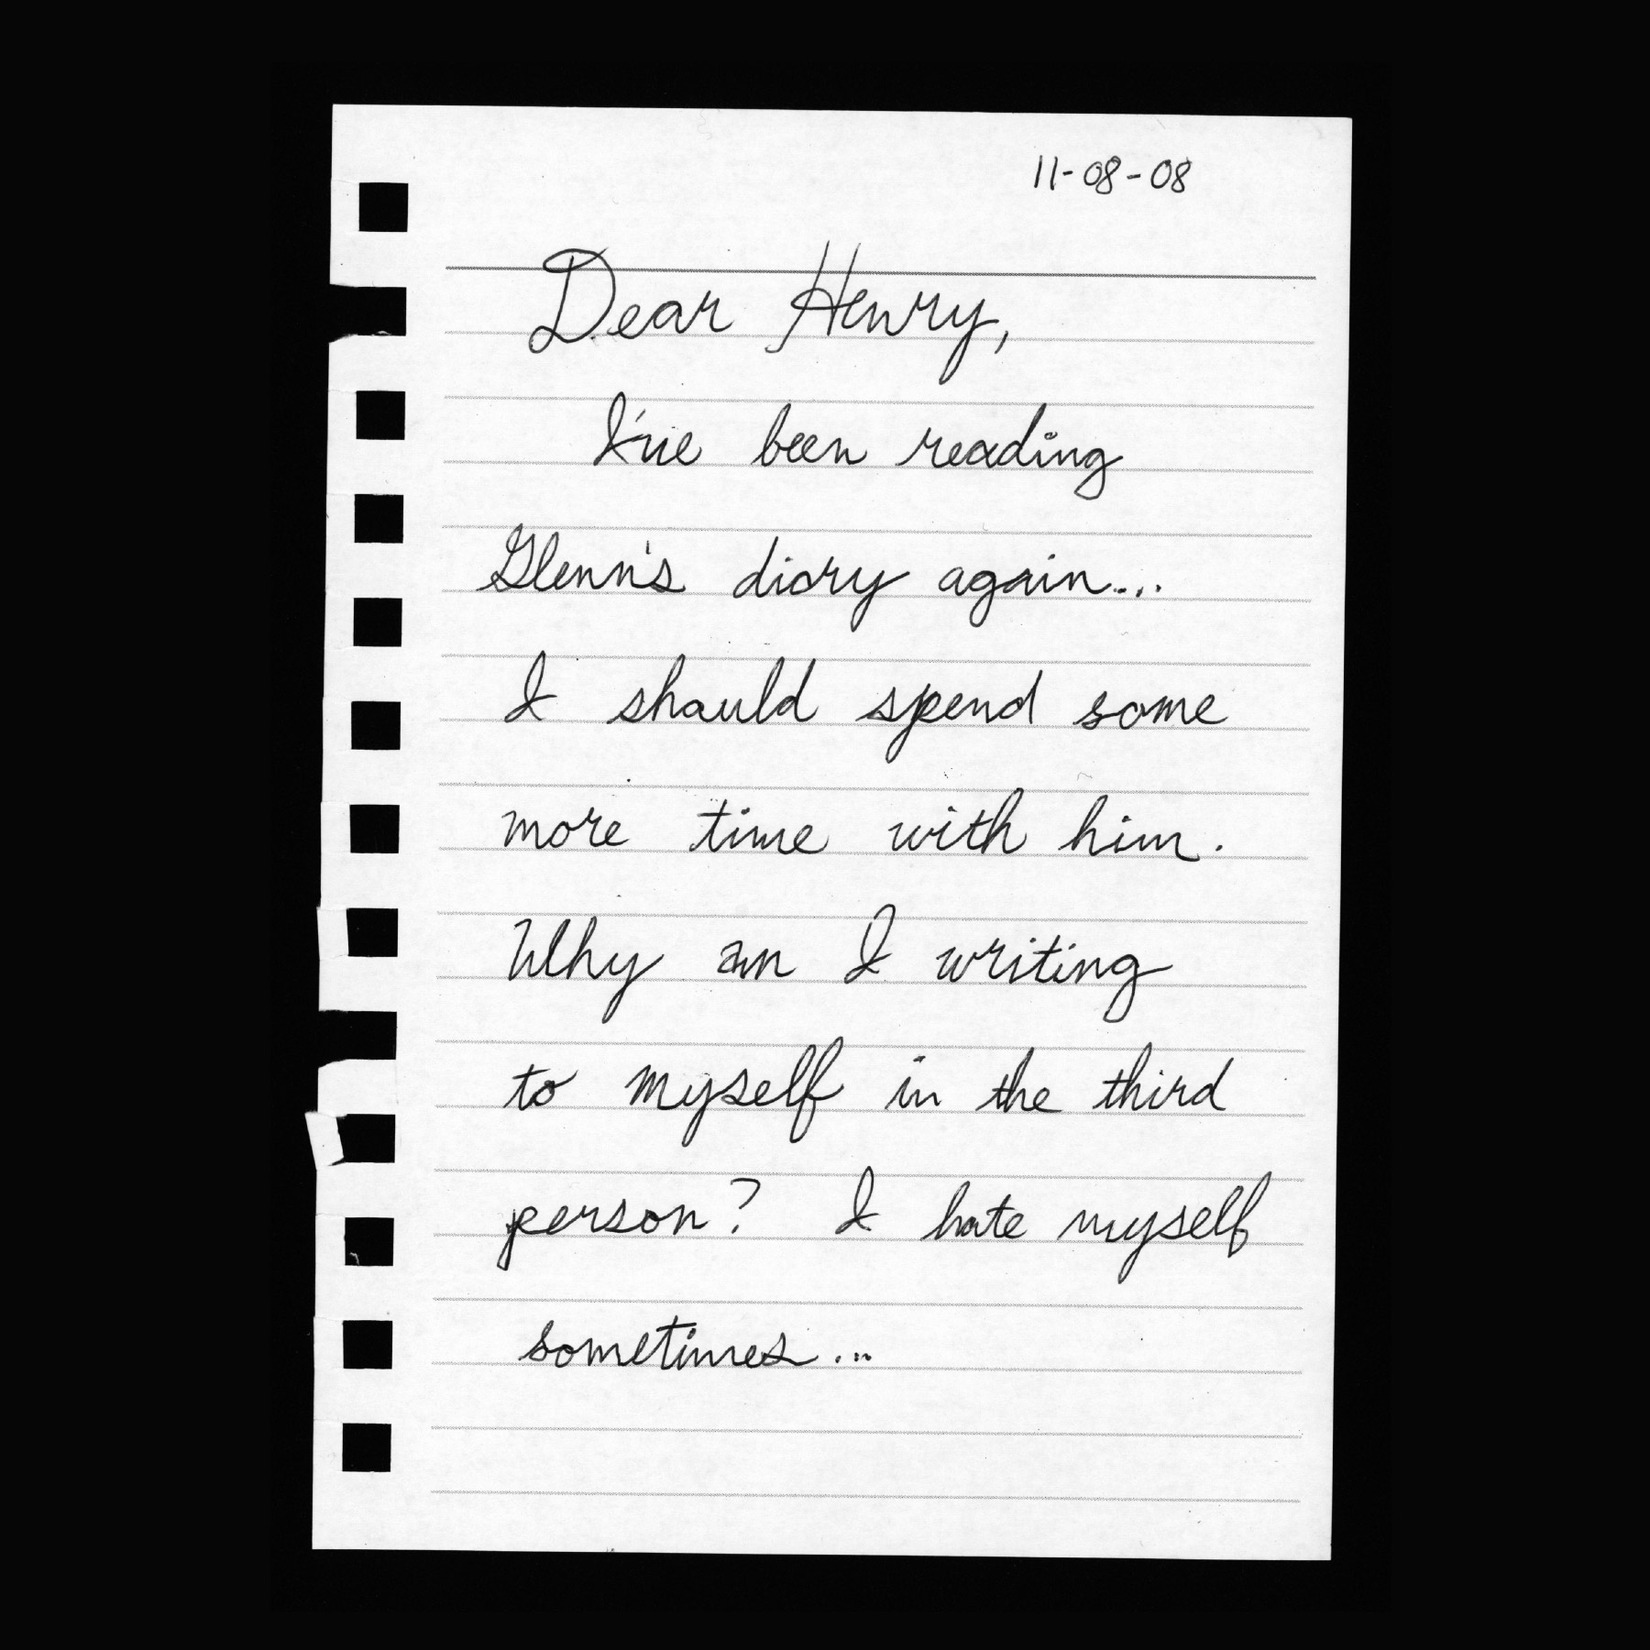 11-08-08
Dear Henry,
I've been reading
Glenn's diary again...
I should spend some
more time with him.
Why am I writing
to myself in the third
person? I hate myself
sometimes...